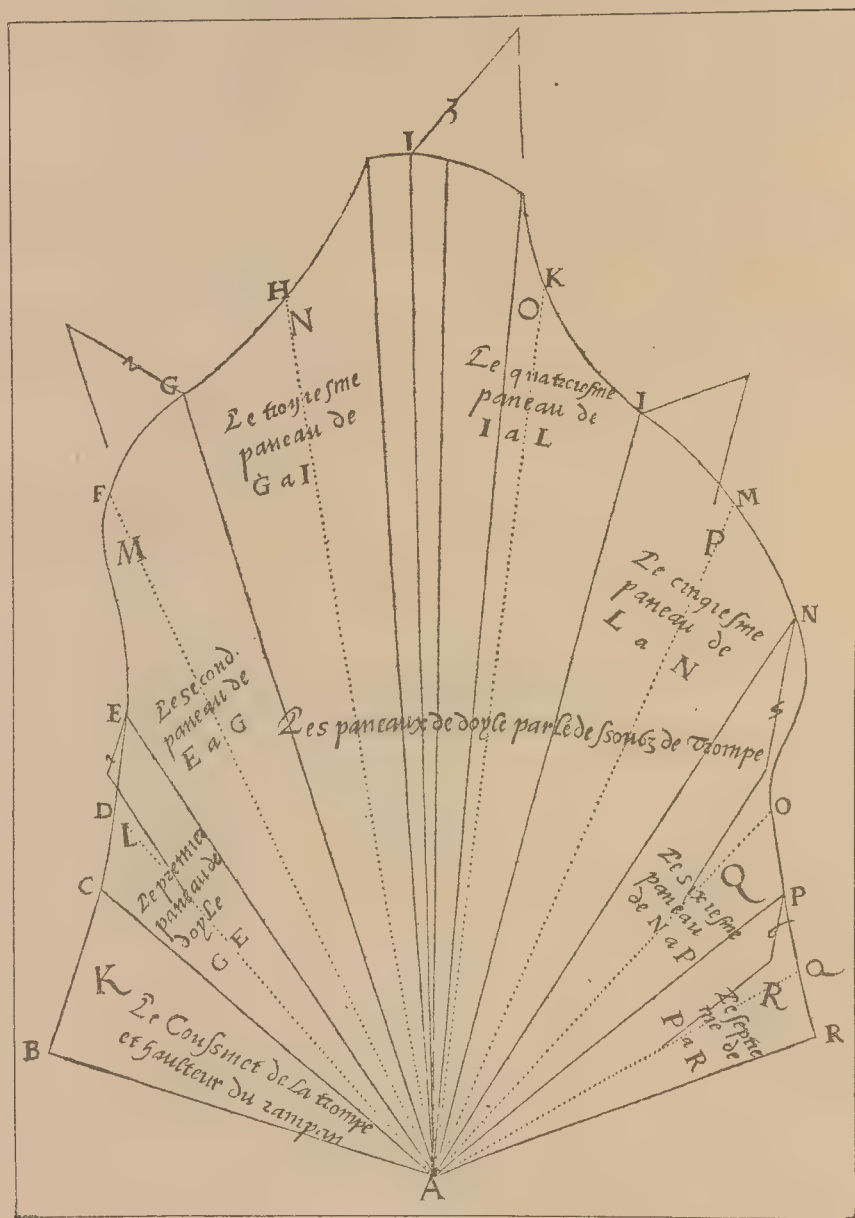 I
3
H
N
K
O
2
G
Le troyiesme
paneau de
G a I
Le quatriesme
paneau de
I a L
I
F
M
M
P
Le cinqiesme
paneau de
L a N
N
E
Le second.
paneau de
E a G
Les paneaux de doyle par le dessoubz de Trompe
s
D
L
O
C
Le premier
paneau de
doyle
C E
Le sixiesme
paneau
de N a P
Q
P
6
K
Le Coussinet de la trompe
et haulteur du rampan
R
Le septie
me de
P a R
Q
B
R
A